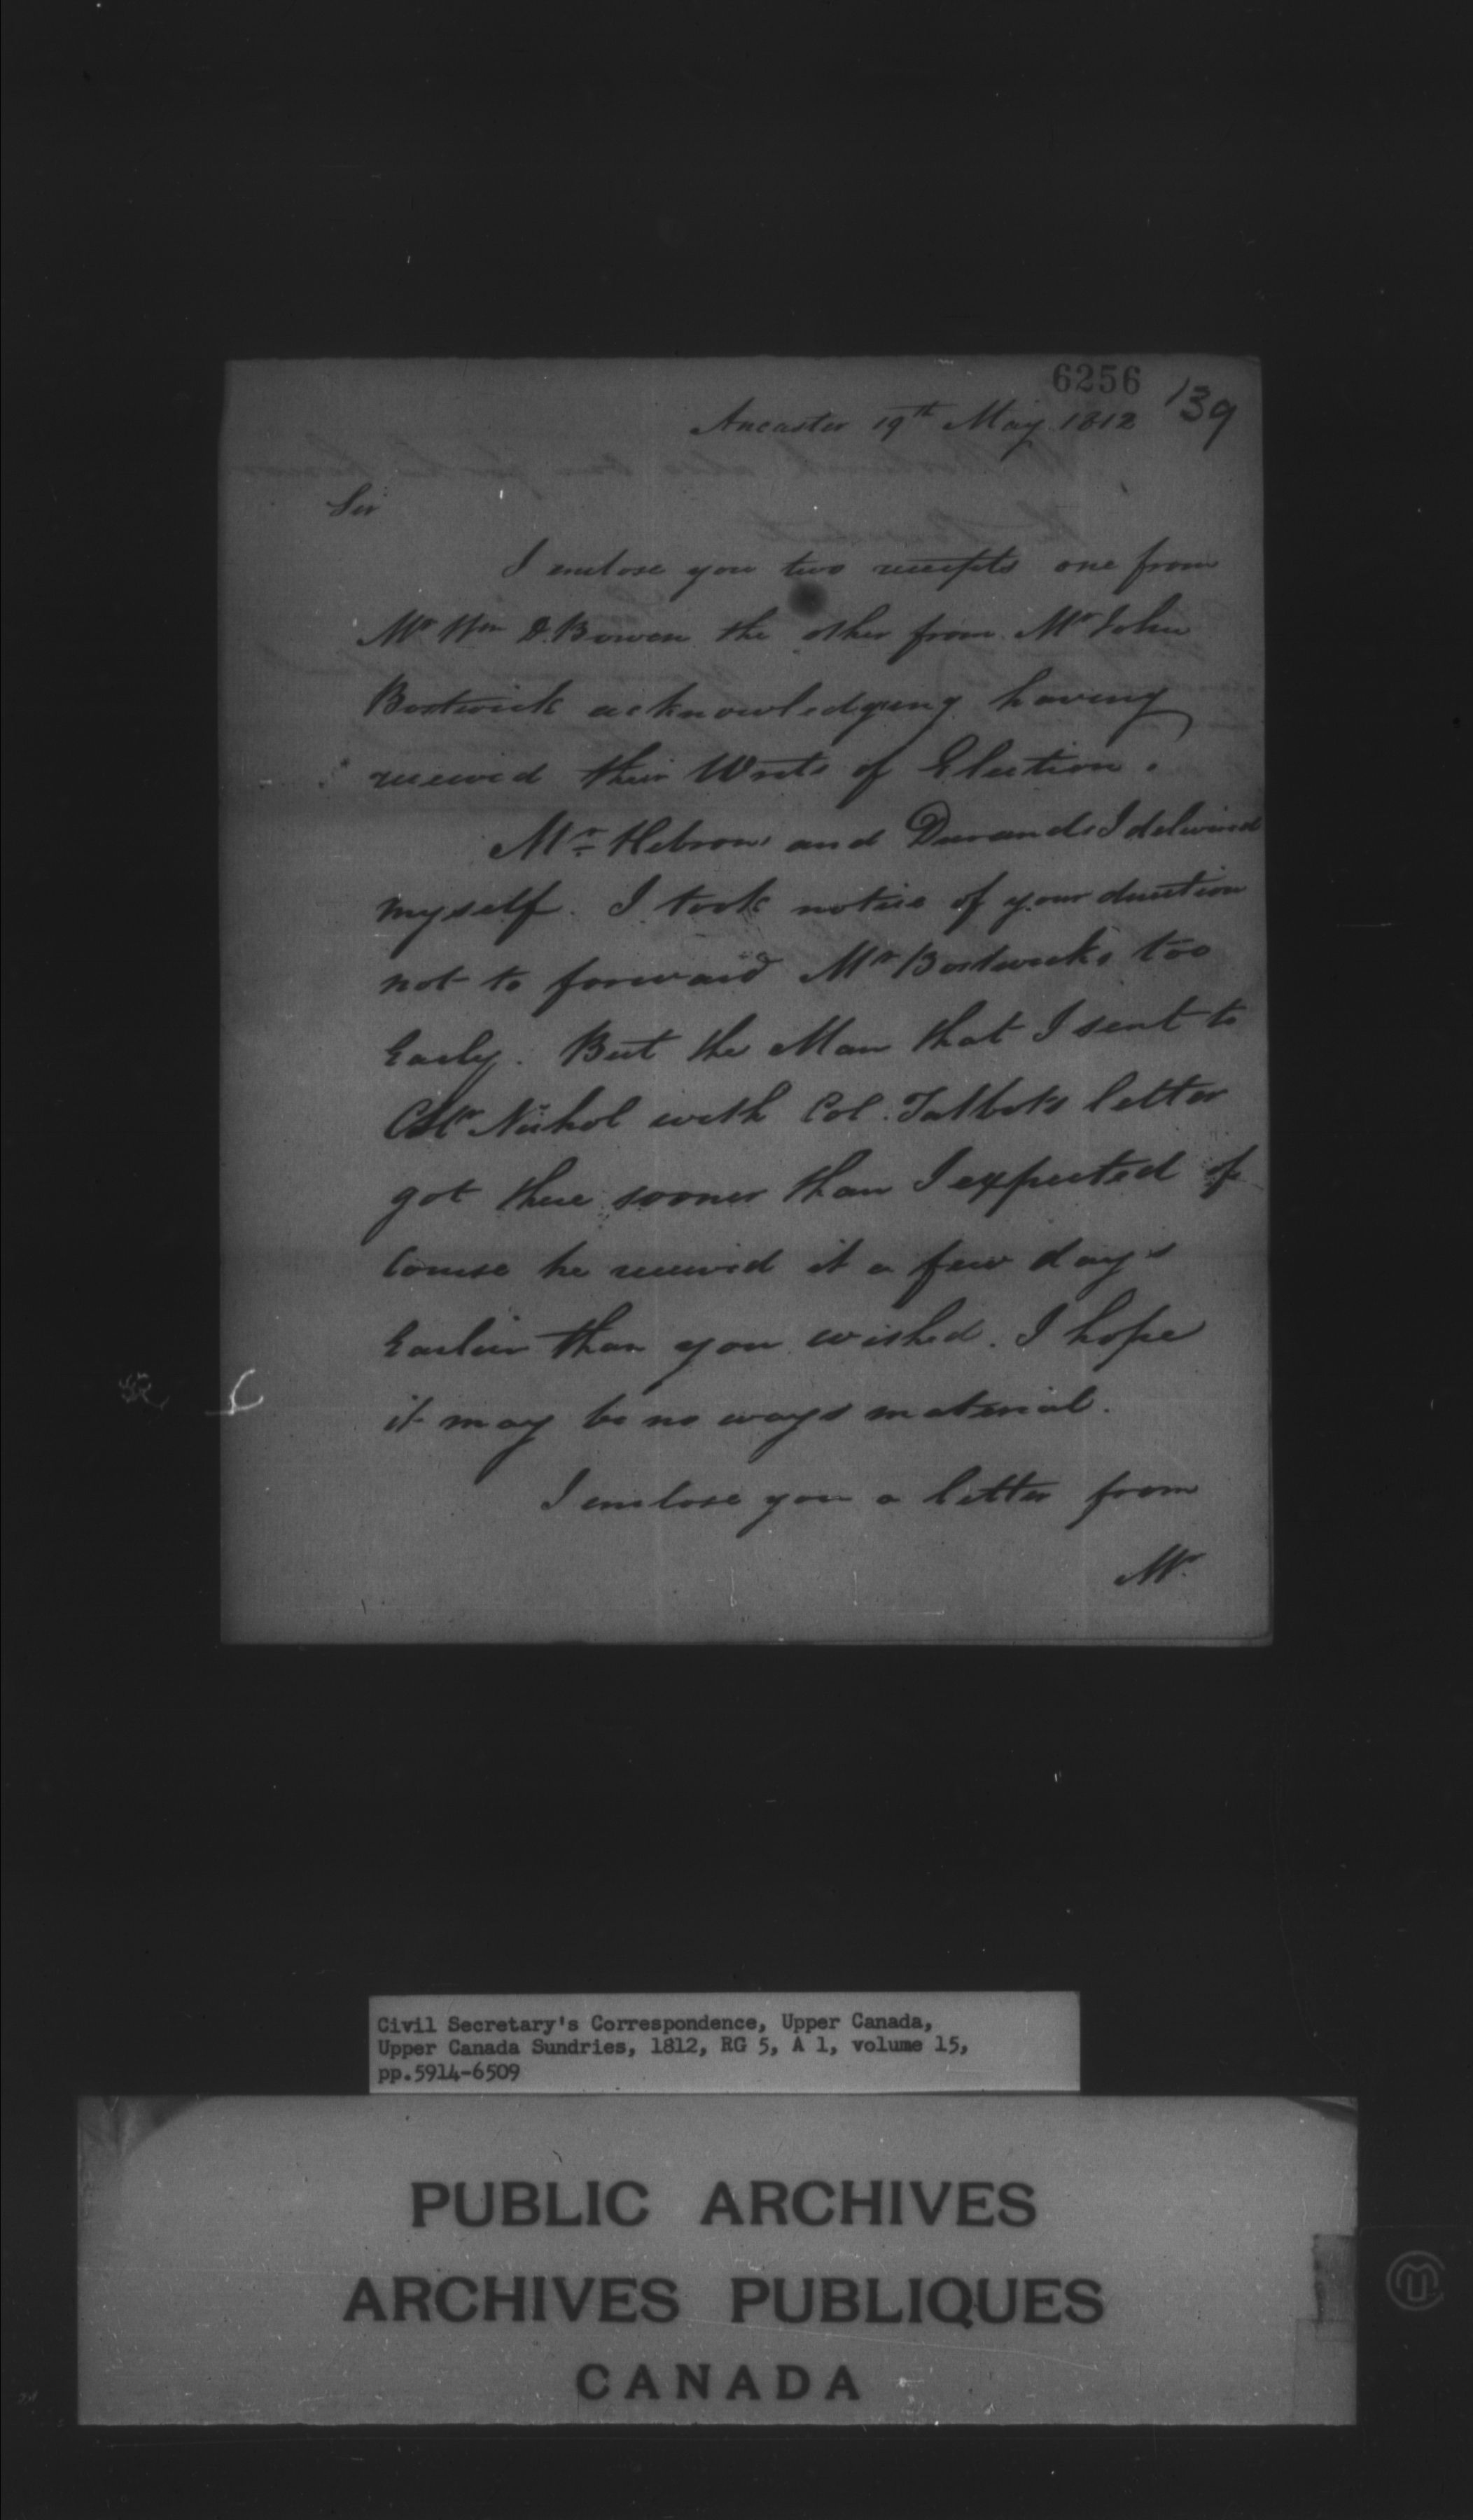 6256
139
Ancaster 19th May 1812
Sir
I enclose you two receipts one from
Mr Wm D. Bowen the other from Mr John
Bostwick acknowledgeing having
received their Writs of Election.
Mr Hebrons and Durands I delivered
myself. I took notice of your direction
not to forward Mr Bostwicks too
Early. But the Man that I sent to
Nichol with Col. Talbots letter
got there sooner than I expected of
Course he received it a few days
Earlier than you wished. I hope
it may be no ways material.
I enclose you a letter from
Mr
Civil Secretary's Correspondence, Upper Canada,
Upper Canada Sundries, 1812, RG 5, A 1, volume 15,
pp.5914-6509
PUBLIC ARCHIVES
ARCHIVES PUBLIQUES
CANADA